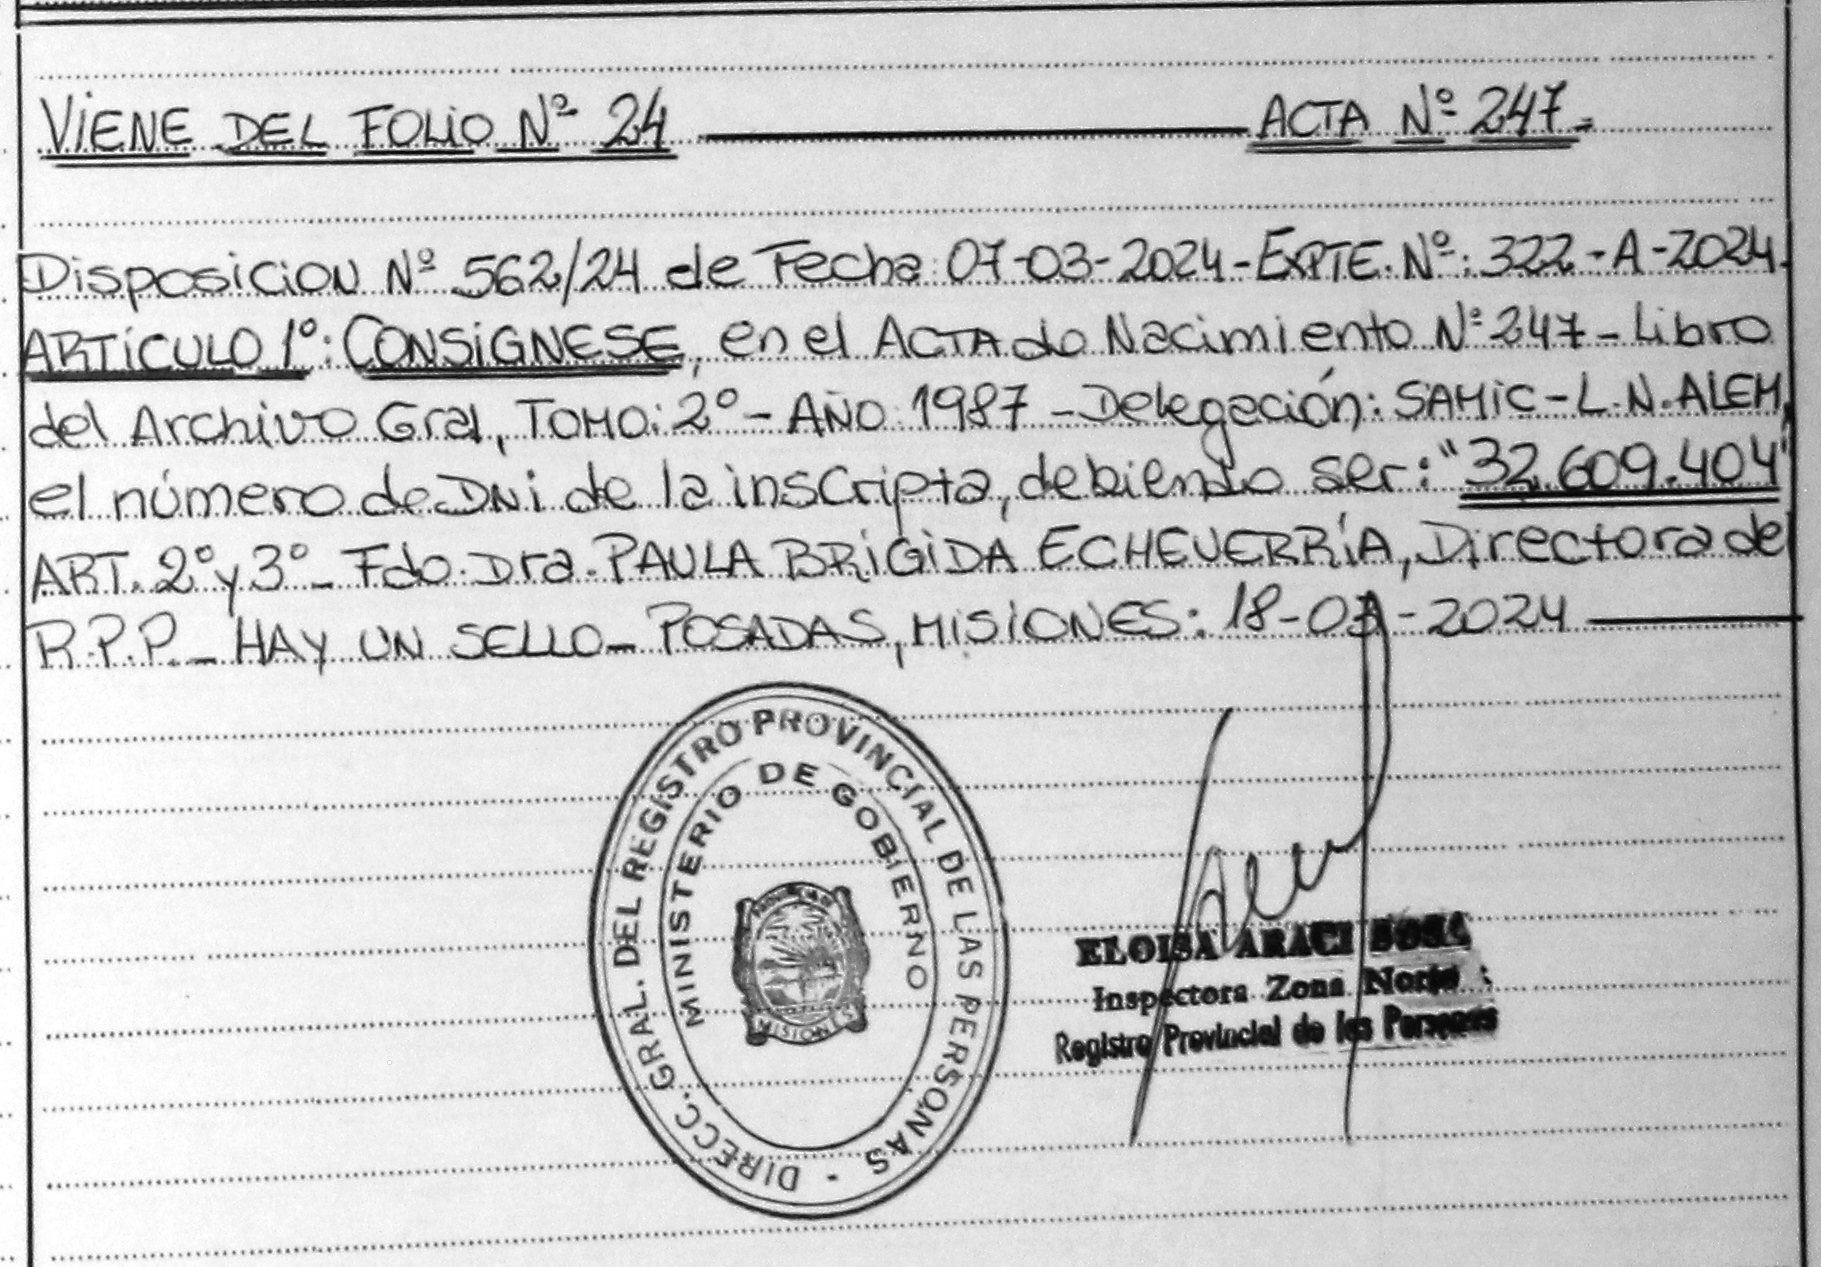 VIENE DEL FOLIO Nº 24 ACTA Nº 247.
Disposicion Nº 562/24 de Fecha: 07-03-2024-EXPTE. Nº: 322-A-2024.
ARTÍCULO 1º: CONSIGNESE, en el ACTA de Nacimiento Nº 247-Libro
del Archivo Gral, TOMO: 2º-AÑO: 1987-Delegación: SAMIC-L.N.ALEM,
el número de DNI de la inscripta, debiendo ser: "32.609.404"
ART. 2º y 3º- Fdo. Dra. PAULA BRIGIDA ECHEVERRÍA, Directora del
R.P.P.- HAY UN SELLO- POSADAS, MISIONES: 18-03-2024
DIRECC. GRAL. DEL REGISTRO PROVINCIAL DE LAS PERSONAS -
MINISTERIO DE GOBIERNO
MISIONES
ELOISA ARACI SOSA
Inspectora Zona Norte
Registro Provincial de las Personas